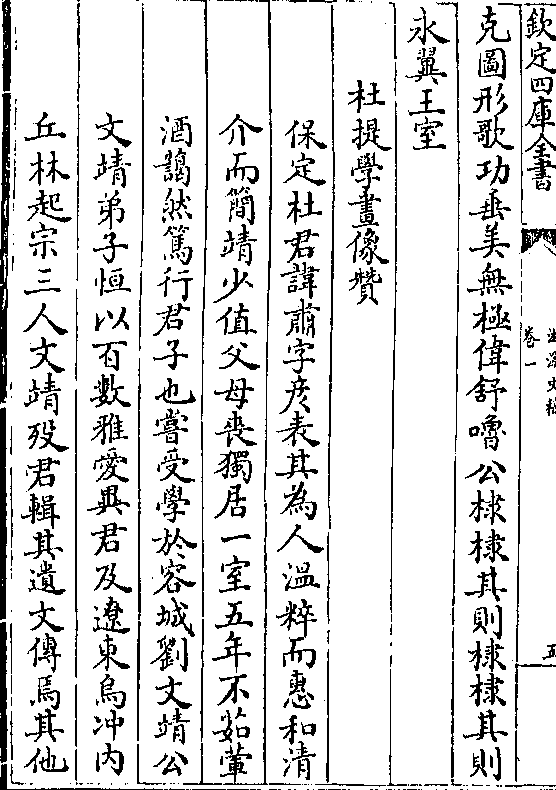 欽定四庫全書
卷一
五
克圖形歌功垂美無極偉舒嚕公棣棣其則棣棣其則
永翼王室
杜提學畫像贊
保定杜君諱肅字彦表其為人溫粹而惠和清
介而簡靖少值父母喪獨居一室五年不茹葷
酒藹然篤行君子也嘗受學於容城劉文靖公
文靖弟子恒以百數雅愛與君及遼東烏冲内
丘林起宗三人文靖殁君輯其遺文傳焉其他